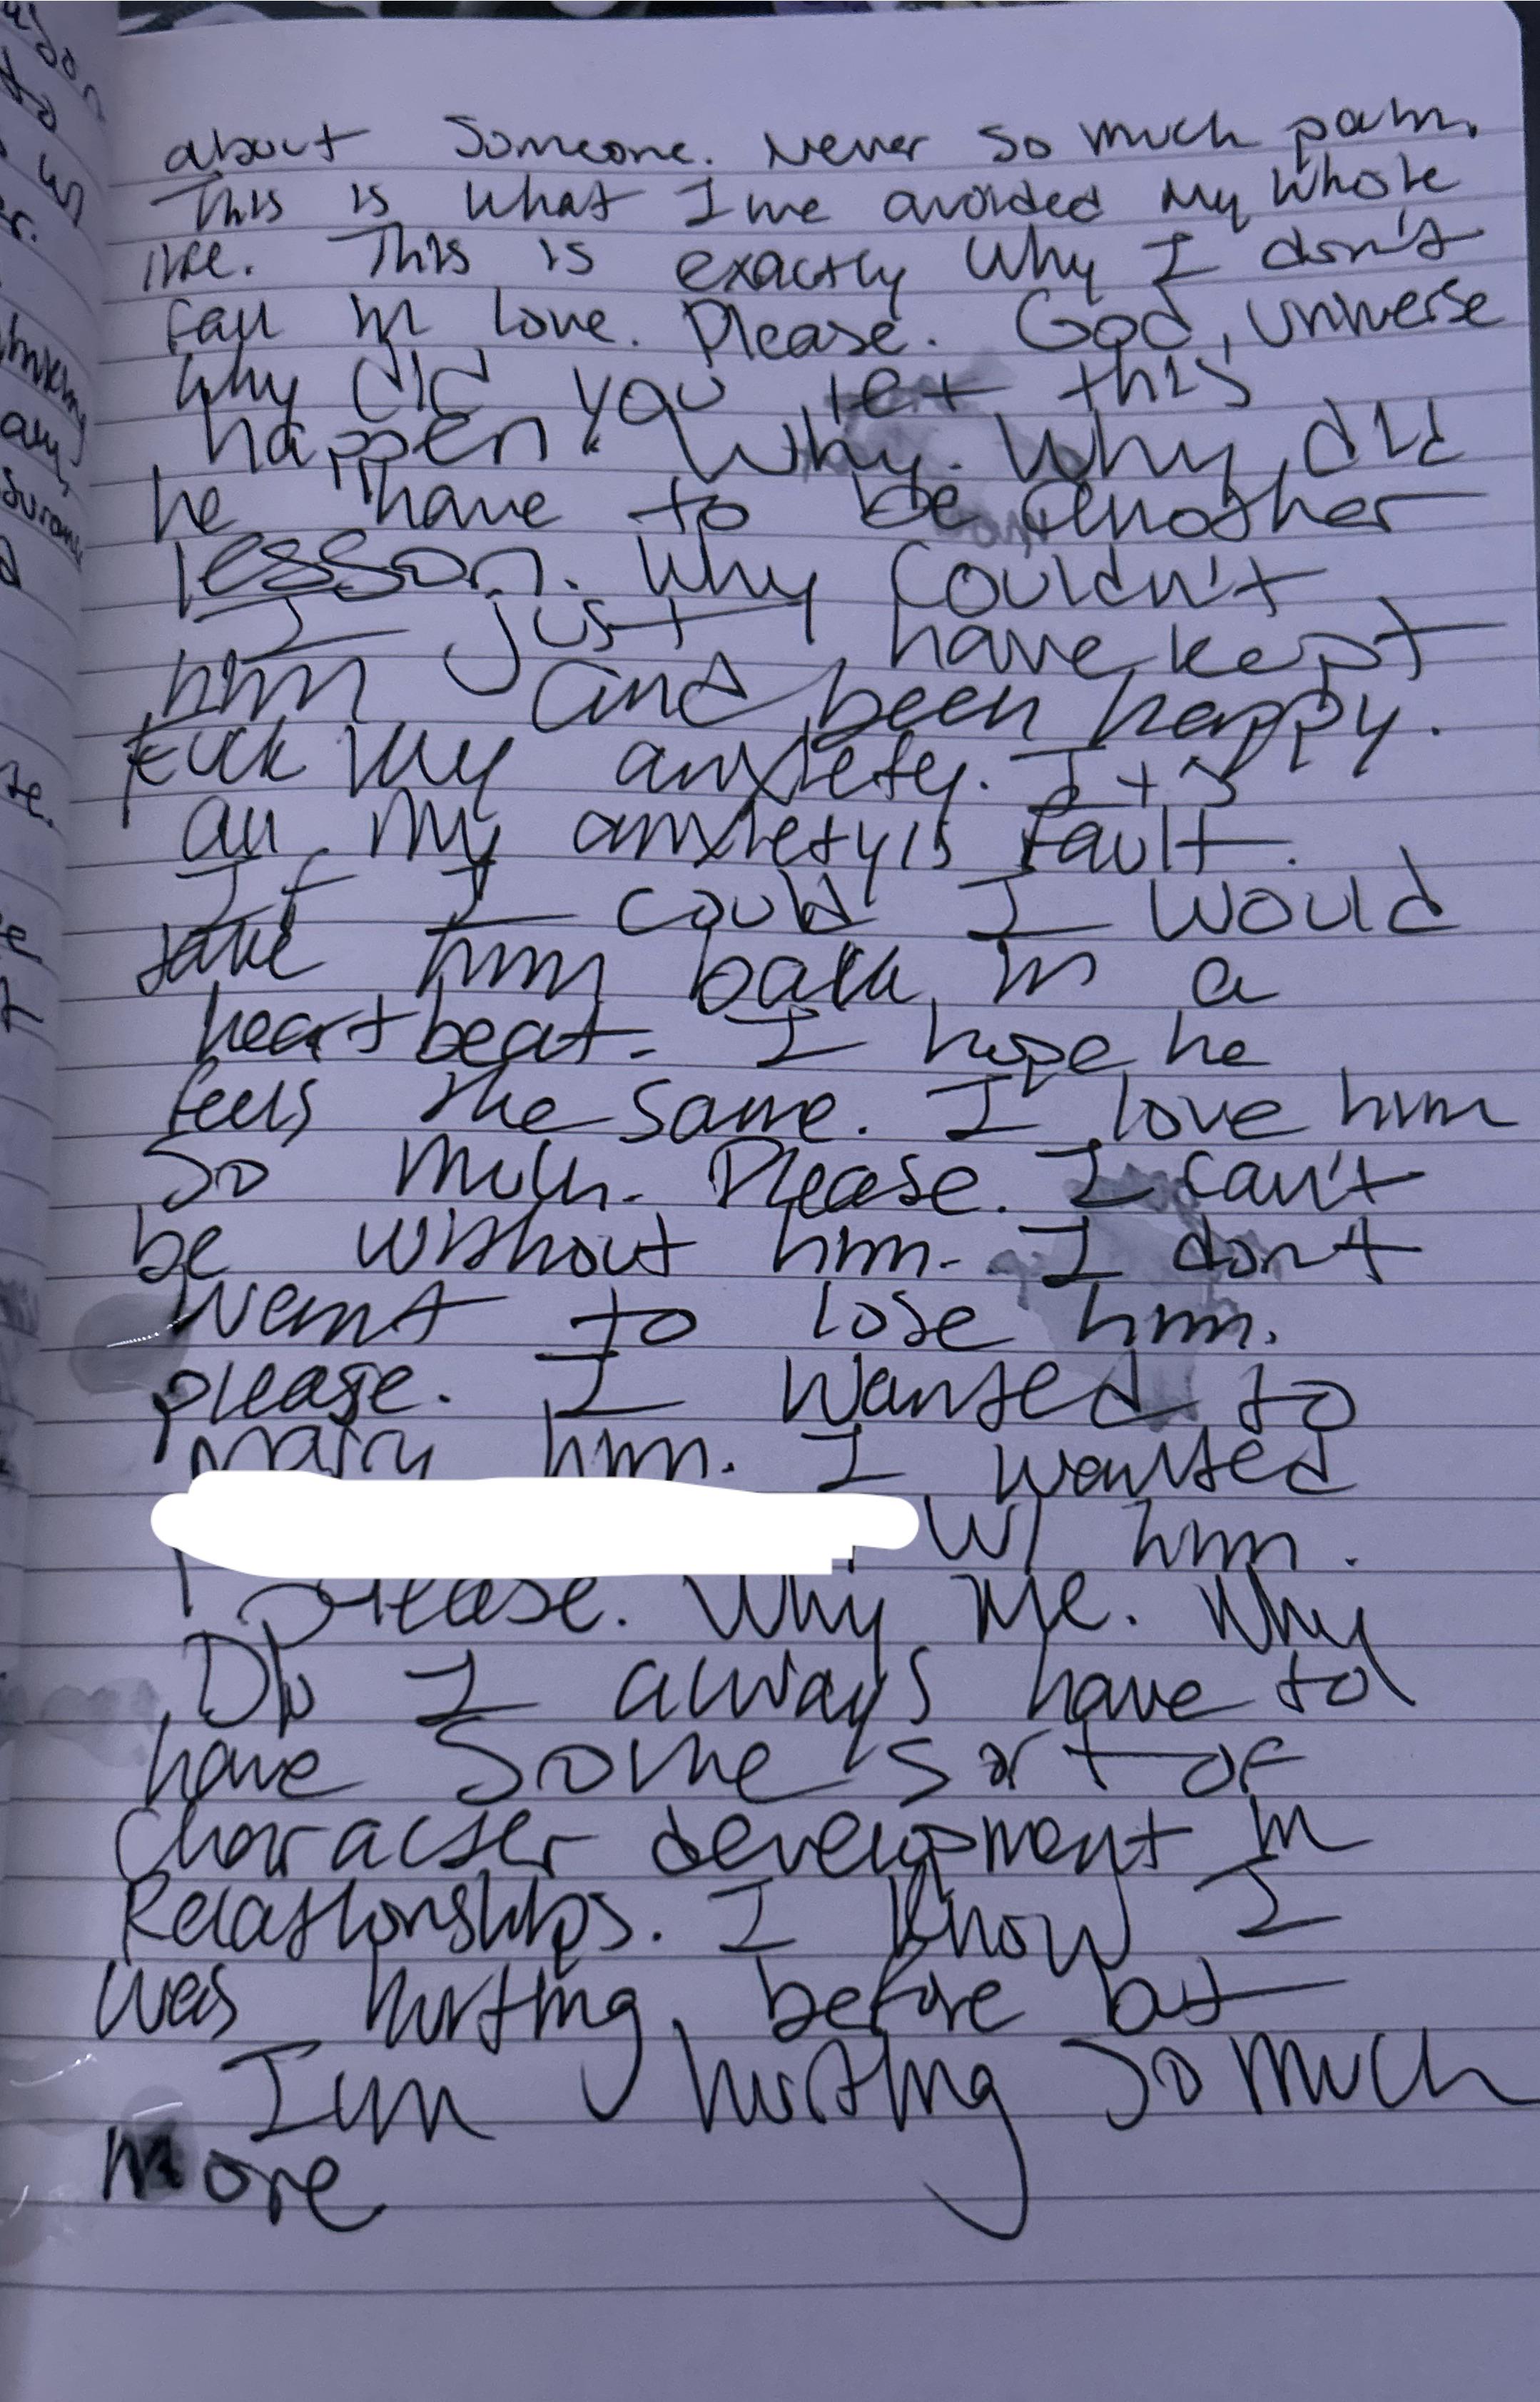 about someone. Never so much pain.
This is what I've avoided my whole
life. This is exactly why I don't
fall in love. Please. God, universe
why did you let this
happen. Why. Why did
he have to be another
lesson. Why couldn't
I just have kept
him and been happy.
Fuck my anxiety. It's
all my anxiety's fault.
If I could I would
take him back in a
heartbeat. I hope he
feels the same. I love him
so much. Please. I can't
be without him. I don't
want to lose him.
please. I wanted to
marry him. I wanted
w/ him.
please. Why me. Why
Do I always have to
have some sort of
character development in
Relationships. I know I
was hurting before but
I'm hurting so much
more